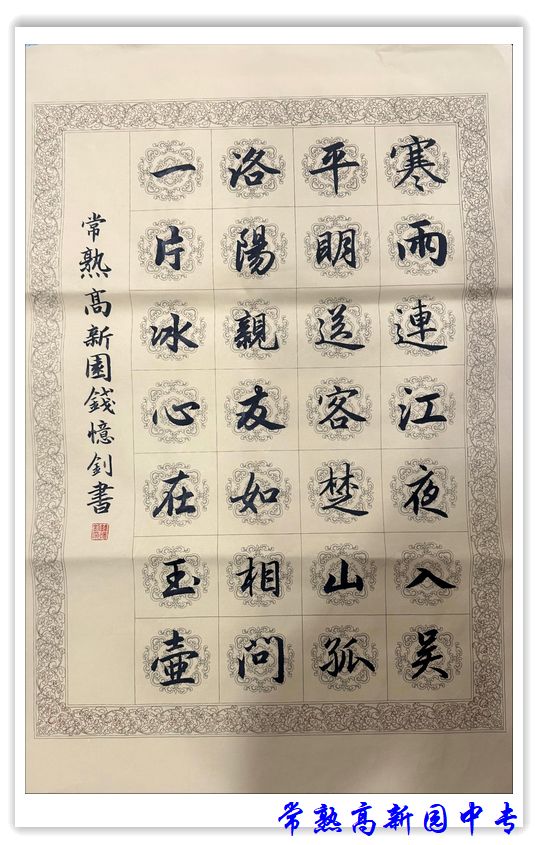 寒雨連江夜入吴
平明送客楚山孤
洛陽親友如相問
一片冰心在玉壺
常熟高新園錢憶釗書
常熟高新园中专